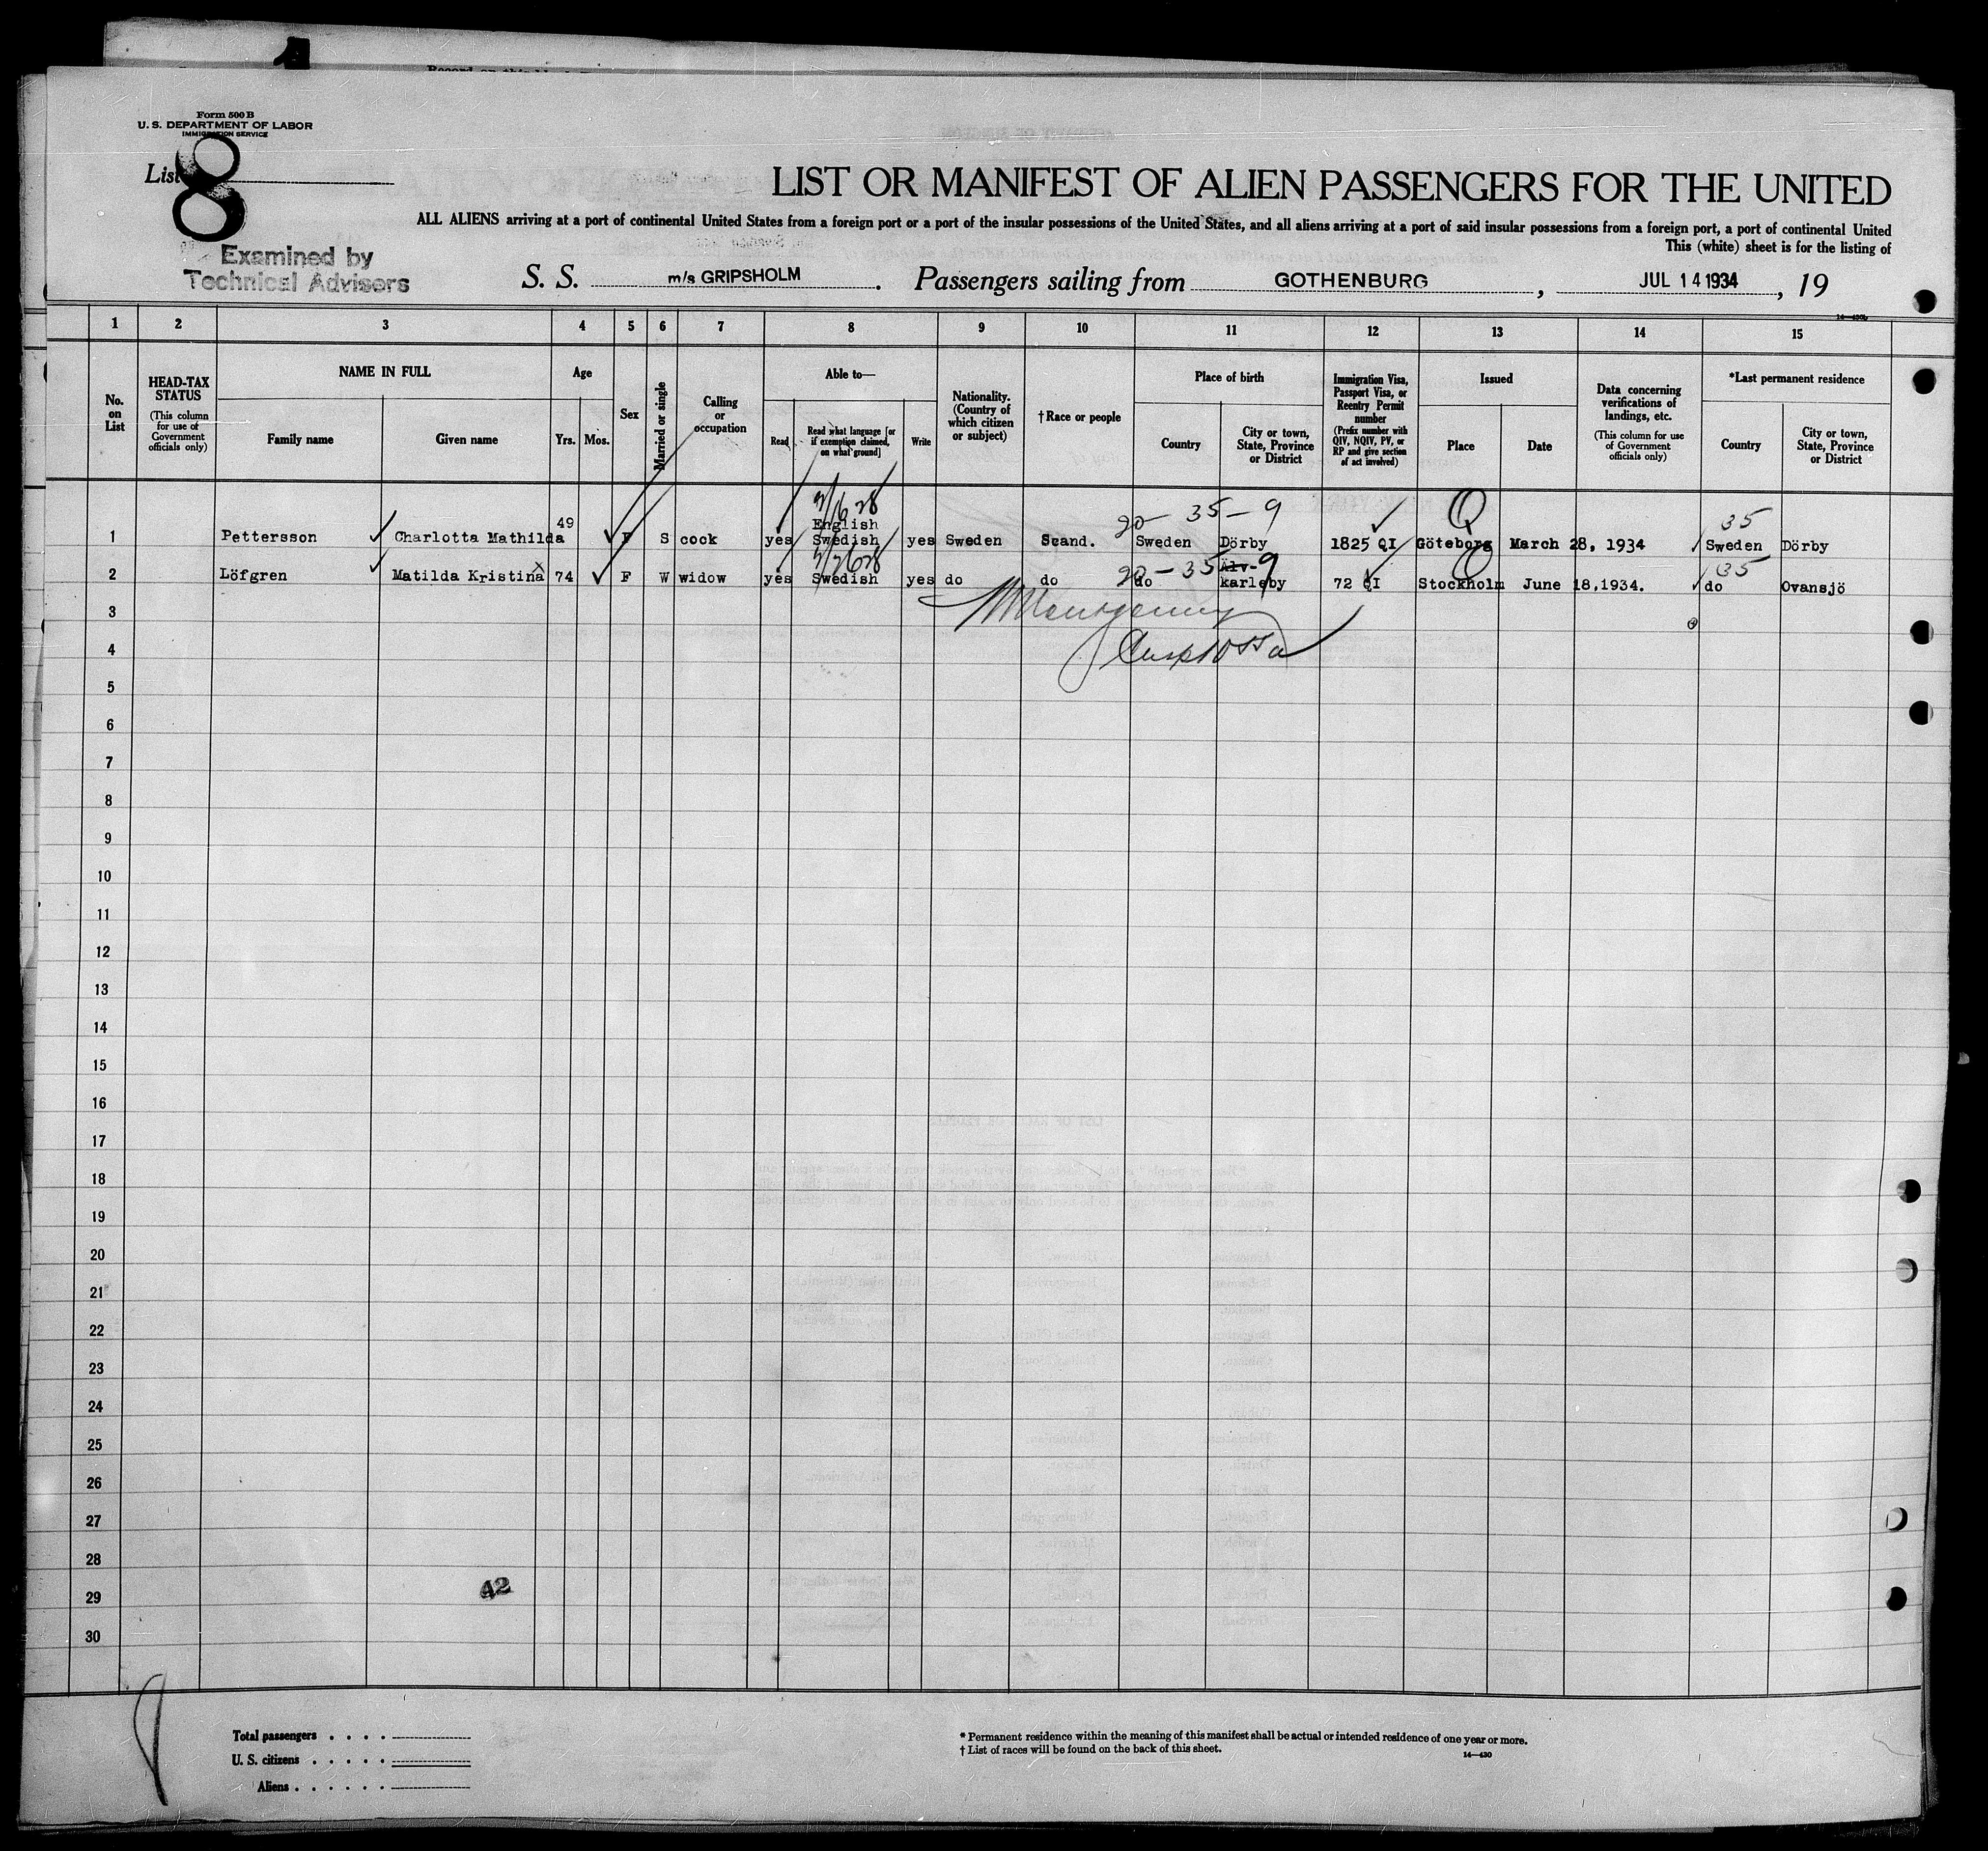 Form 500 B
U. S. DEPARTMENT OF LABOR
IMMIGRATION SERVICE
List 8
LIST OR MANIFEST OF ALIEN PASSENGERS FOR THE UNITED
ALL ALIENS arriving at a port of continental United States from a foreign port or a port of the insular possessions of the United States, and all aliens arriving at a port of said insular possessions from a foreign port, a port of continental United
This (white) sheet is for the listing of
Examined by
Technical Advisers
S. S. m/s GRIPSHOLM. Passengers sailing from GOTHENBURG, JUL 14 1934, 19
1 2 3 4 5 6 7 8 9 10 11 12 13 14 15
No. on List
HEAD-TAX STATUS
(This column for use of Government officials only)
NAME IN FULL
Family name Given name
Age
Yrs. Mos.
Sex
Married or single
Calling or occupation
Able to—
Read
Read what language [or if exemption claimed, on what ground]
Write
Nationality. (Country of which citizen or subject)
†Race or people
Place of birth
Country
City or town, State, Province or District
Immigration Visa, Passport Visa, or Reentry Permit number
(Prefix number with QIV, NQIV, PV, or RP and give section of act involved)
Issued
Place Date
Data concerning verifications of landings, etc.
(This column for use of Government officials only)
*Last permanent residence
Country
City or town, State, Province or District
20 - 35 - 9 Q 35
1 Pettersson Charlotta Mathilda 49 F S cook yes English Swedish yes Sweden Scand. Sweden Dörby 1825 QI Göteborg March 28, 1934 Sweden Dörby
20 - 35 - 9 Q 35
2 Löfgren Matilda Kristina X 74 F W widow yes Swedish yes do do do Älv-karleby 72 QI Stockholm June 18,1934. do Ovansjö
3
4
5
6
7
8
9
10
11
12
13
14
15
16
17
18
19
20
21
22
23
24
25
26
27
28
29
30
42
Total passengers . . . .
U. S. citizens . . . . .
Aliens . . . . . .
* Permanent residence within the meaning of this manifest shall be actual or intended residence of one year or more.
† List of races will be found on the back of this sheet.
14—430